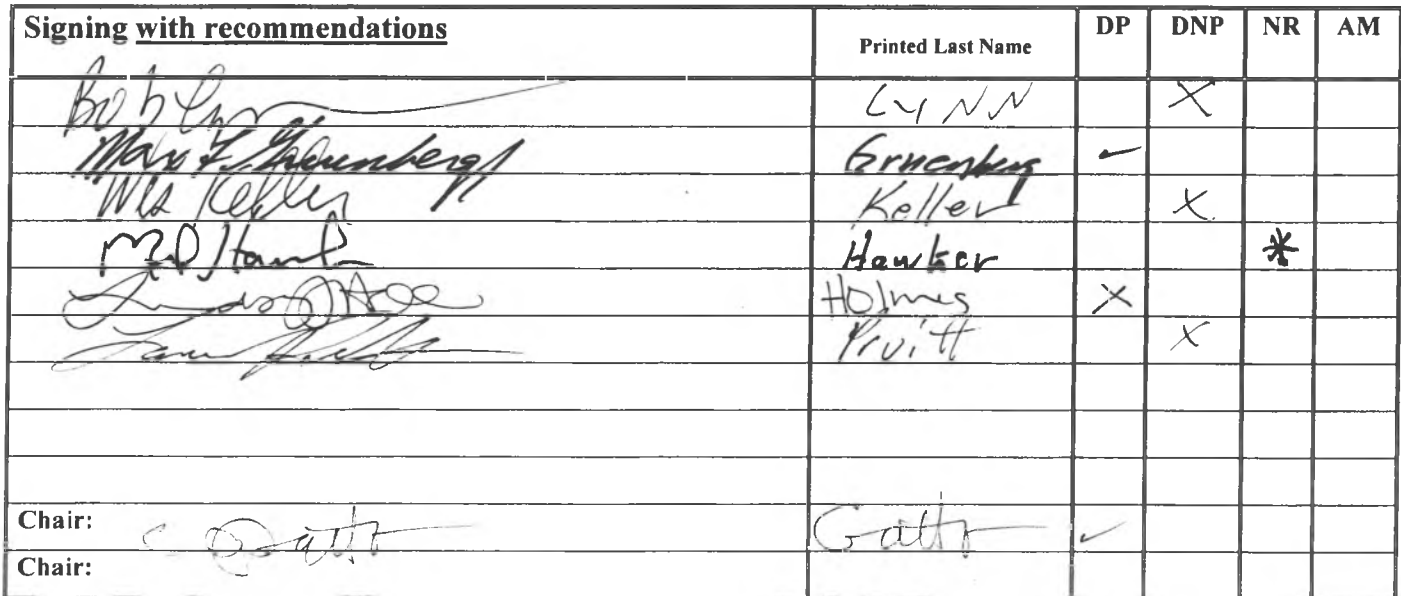 Signing with recommendations Printed Last Name DP DNP NR AM
Bob Lynn LYNN X
Max F. Gruenberg Gruenberg ✓
Wes Keller Keller X
Hawker *
Holmes X
Pruitt X
Chair: Gatto Gatto ✓
Chair: